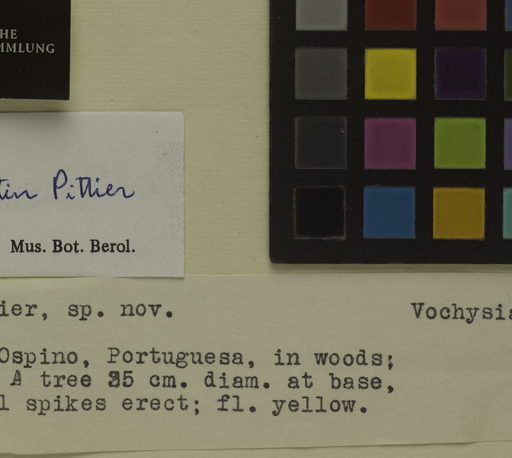 HE
MMLUNG
tin Pittier
Mus. Bot. Berol.
ier, sp. nov. Vochysia
Ospino, Portuguesa, in woods;
A tree 35 cm. diam. at base,
l spikes erect; fl. yellow.